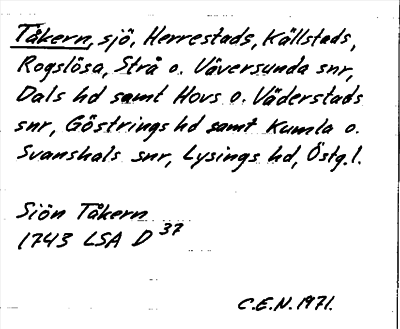 Tåkern, sjö, Herrestads, Källstads,
Rogslösa, Strå o. Väversunda snr,
Dals hd samt Hovs o. Väderstads
snr, Göstrings hd samt Kumla o.
Svanshals snr, Lysings hd, Östg.l.
Siön Tåkern
1743 LSA D 37
C.E.N. 1971.